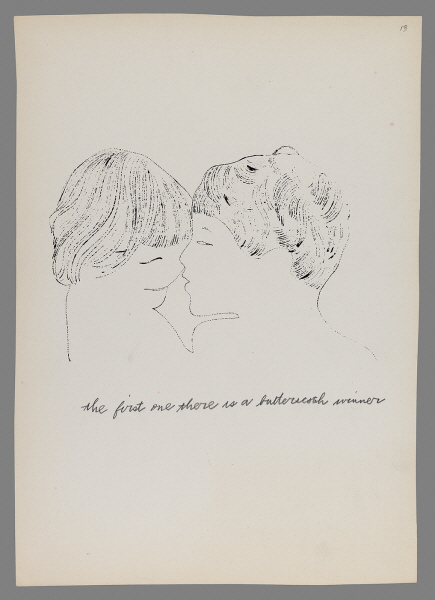 13
the first one there is a butterscosh winner